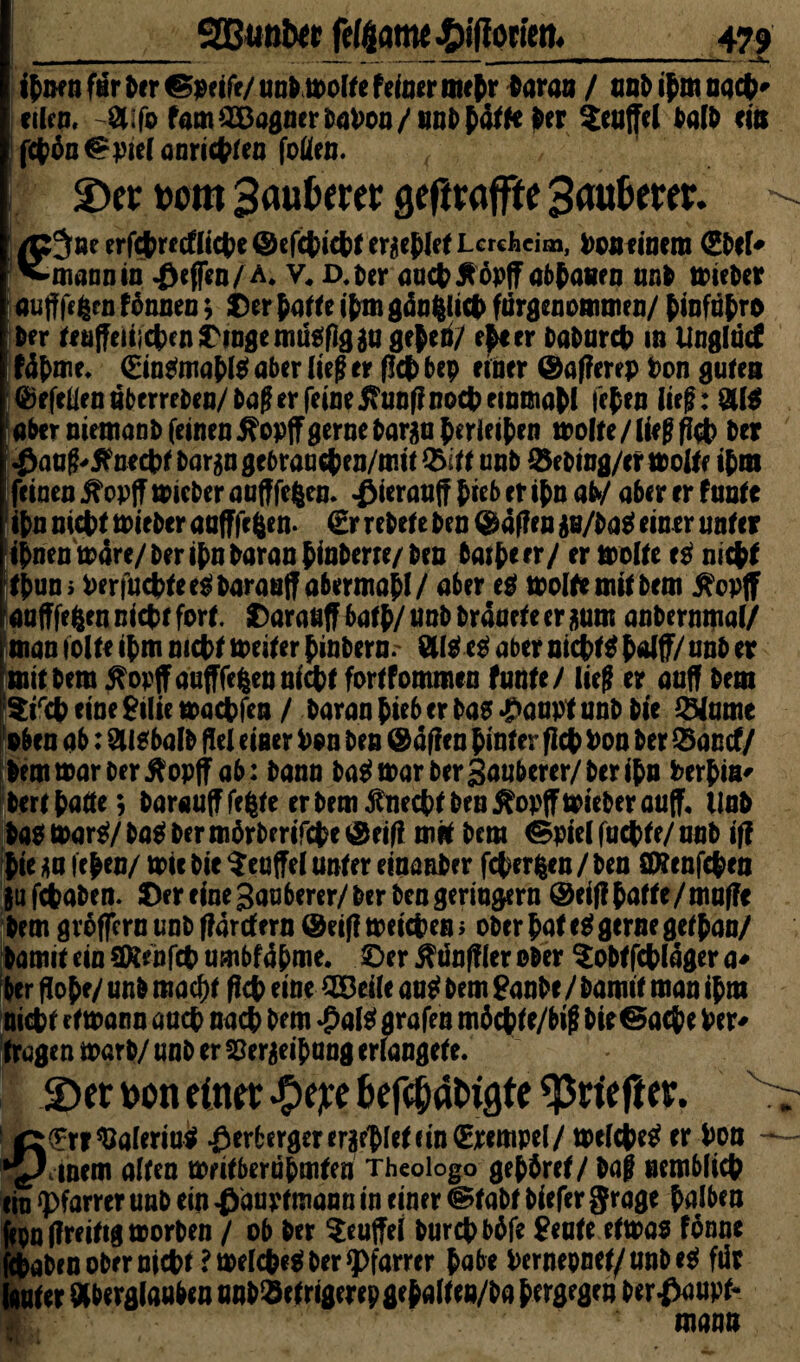 Wunder selßame Historien. 479
ihnen für der Speise/ und wolte keiner mehr daran / und ihm nach-
eilen. Also kam Wagner davon / und hätte der Teuffel bald ein
schön Spiel anrichten sollen.
Der vom Zauberer gestraffte Zauberer.
EJne erschreckliche Geschicht erzehlet Lercheim, von einem Edel-
mann in Hessen / A. V. D. der auch Köpff abhauen und wieder
auffseßen können; Der hatte ihm gänßlich fürgenommen/ hinführo
der teuffelischen Dinge müssig zu gehen/ ehe er dadurch in Unglück
kähme. Einsmahls aber ließ er sich bey einer Gasterey von guten
Gesellen überreden/ daß er seine Kunst noch einmahl sehen ließ: Als
aber niemand seinen Kopff gerne darzu herleihen wolte / ließ sich der
Hauß-Knecht darzu gebrauchen/mit Bitt und Beding/er wolte ihm
seinen Kopff wieder auffseßen. Hierauff hieb er ihn ab/ aber er kunte
ihn nicht wieder auffseßen. Er redete den Gästen zu/das einer unter
ihnen wäre/ der ihn daran hinderte/ den bathe er/ er wolte es nicht
thun; versuchte es darauff abermahl / aber es wolte mit dem Kopff
auffseßen nicht fort. Darauff bath/ und dräuete er zum andernmal/
man solte ihm nicht weiter hindern. Als es aber nichts halff/ und er
mit dem Kopff auffseßen nicht fortkommen kunte / ließ er auff dem
Tisch eine Lilie wachsen / daran hieb er das Haupt und die Blume
oben ab: Alsbald fiel einer von den Gästen hinter sich von der Banck/
dem war der Kopff ab: dann das war der Zauberer/ der ihn verhin-
dert hatte; darauff seßte er dem Knecht den Kopff wieder auff. Und
das wars/ das der mörderische Geist mit dem Spiel suchte/ und ist
hie zu sehen/ wie die Teuffel unter einander scherßen / den Menschen
zu schaden. Der eine Zauberer/ der den geringern Geist hatte / muste
dem grössern und stärckern Geist weichen; oder hat es gerne gethan/
damit ein Mensch umbkähme. Der Künstler oder Todtschläger a-
ber flohe/ und macht sich eine Weile aus dem Lande / damit man ihm
nicht etwann auch nach dem Hals grafen möchte/biß die Sache ver-
tragen ward/ und er Verzeihung erlangete.
Der von einer Hexe beschädigte Priester.
HErr Valerius Herberger erzehlet ein Exempel / welches er von
einem alten weitberühmten Theologo gehöret / daß nemblich
ein Pfarrer und ein Hauptmann in einer Stadt dieser Frage halben
seyn streitig worden / ob der Teuffel durch böse Leute etwas könne
schaden oder nicht ? welches der Pfarrer habe verneynet/ und es für
lauter Aberglauben und Betrigerey gehalten/da hergegen der Haupt-
mann